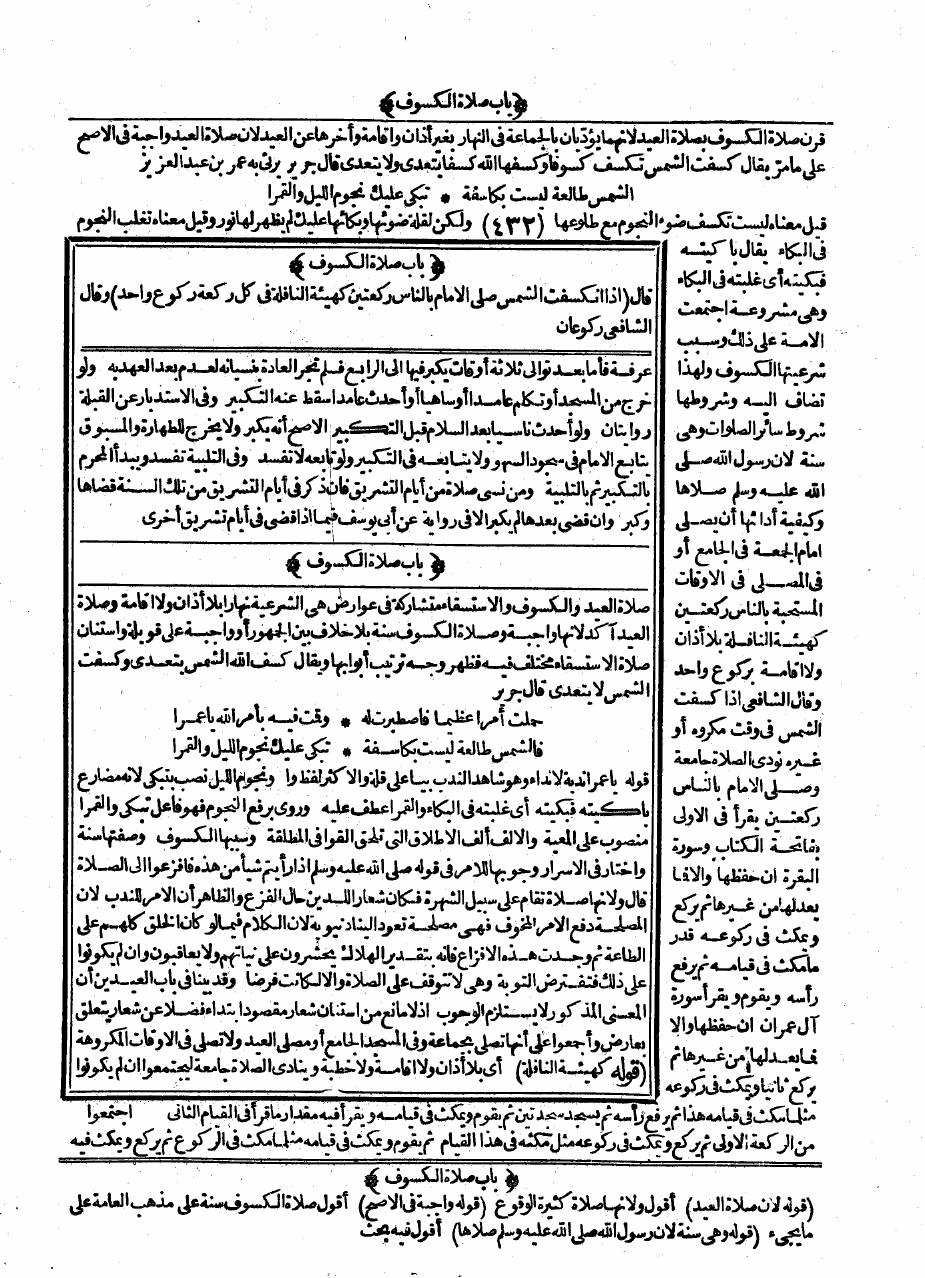 ﴿باب صلاة الكسوف﴾
قرن صلاة الكسوف بصلاة العيد لانهما يؤديان بالجماعة فى النهار بغير أذان واقامة وأخرها عن العيد لان صلاة العيد واجبة فى الاصح
على ما مر يقال كسفت الشمس تكسف كسوفا وكسفها الله كسفا يتعدى ولا يتعدى قال جرير يرثى به عمر بن عبد العزيز
الشمس طالعة ليست بكاسفة * تبكى عليك نجوم الليل والقمرا
قيل معناه ليست تكسف ضوء النجوم مع طلوعها (٤٣٢) ولكن لقلة ضوئها وبكائها عليك لم يظهر لها نور وقيل معناه تغلب النجوم
فى البكاء يقال باكيته
فبكيته أى غلبته فى البكاء
وهى مشروعة اجتمعت
الامة على ذلك وسبب
شرعيتها الكسوف ولهذا
تضاف اليه وشروطها
شروط سائر الصلوات وهى
سنة لان رسول الله صلى
الله عليه وسلم صلاها
وكيفية أدائها أن يصلى
امام الجمعة فى الجامع أو
فى المصلى فى الاوقات
المستحبة بالناس ركعتين
كهيئة النافلة بلا أذان
ولا اقامة بركوع واحد
وقال الشافعى اذا كسفت
الشمس فى وقت مكروه أو
غيره نودى الصلاة جامعة
وصلى الامام بالناس
ركعتين يقرأ فى الاولى
بفاتحة الكتاب وسورة
البقرة ان حفظها والا فما
يعدلها من غيرها ثم يركع
ويمكث فى ركوعه قدر
ما مكث فى قيامه ثم يرفع
رأسه ويقوم ويقرأ سورة
آل عمران ان حفظها والا
فما يعدلها من غيرها ثم
يركع ثانيا ويمكث فى ركوعه
مثل ما مكث فى قيامه هذا ثم يرفع رأسه ثم يسجد سجدتين ثم يقوم ويمكث فى قيامه ويقرأ فيه مقدار ما قرأ فى القيام الثانى
من الركعة الاولى ثم يركع ويمكث فى ركوعه مثل مكثه فى هذا القيام ثم يقوم ويمكث فى قيامه مثل ما مكث فى الركوع ثم يركع ويمكث فيه
﴿باب صلاة الكسوف﴾
قال (اذا انكسفت الشمس صلى الامام بالناس ركعتين كهيئة النافلة فى كل ركعة ركوع واحد) وقال
الشافعى ركوعان
عرفة فأما بعد توالى ثلاثة أوقات يكبر فيها الى الرابع فلم تجر العادة بنسيانه لعدم بعد العهد به ولو
خرج من المسجد أو تكلم عامدا أو ساهيا أو أحدث عامدا سقط عنه التكبير وفى الاستدبار عن القبلة
روايتان ولو أحدث ناسيا بعد السلام قبل التكبير الاصح أنه يكبر ولا يخرج للطهارة والمسبوق
يتابع الامام فى سجود السهو ولا يتابعه فى التكبير ولو تابعه لا تفسد وفى التلبية تفسد ويبدأ المحرم
بالتكبير ثم بالتلبية ومن نسى صلاة من أيام التشريق فان ذكر فى أيام التشريق من تلك السنة قضاها
وكبر وان قضى بعدها لم يكبر الا فى رواية عن أبى يوسف فيما اذا قضى فى أيام تشريق أخرى
﴿باب صلاة الكسوف﴾
صلاة العيد والكسوف والاستسقاء متشاركة فى عوارض هى الشرعية نهارا بلا أذان ولا اقامة وصلاة
العيد آكد لانها واجبة وصلاة الكسوف سنة بلا خلاف بين الجمهور أو واجبة على قويلة واستنان
صلاة الاستسقاء مختلف فيه فظهر وجه ترتيب أبوابها ويقال كسف الله الشمس يتعدى وكسفت
الشمس لا يتعدى قال جرير
حملت أمرا عظيما فاصطبرت له * وقمت فيه بأمر الله يا عمرا
فالشمس طالعة ليست بكاسفة * تبكى عليك نجوم الليل والقمرا
قوله يا عمرا ندبة لا نداء وهو شاهد الندب بيا على قلة والاكثر لفظ وا ونجوم الليل نصب بتبكى لانه مضارع
باكيته فبكيته أى غلبته فى البكاء والقمر اعطف عليه وروى برفع النجوم فهو فاعل تبكى والقمرا
منصوب على المعية والالف ألف الاطلاق التى تلحق القوافى المطلقة وسببها الكسوف وصفتها سنة
واختار فى الاسرار وجوبها للامر فى قوله صلى الله عليه وسلم اذا رأيتم شيأ من هذه فافزعوا الى الصلاة
قال ولانها صلاة تقام على سبيل الشهرة فكان شعارا للدين حال الفزع والظاهر أن الامر للندب لان
المصلحة دفع الامر المخوف فهى مصلحة تعود الينا دنيوية لان الكلام فيما لو كان الخلق كلهم على
الطاعة ثم وجدت هذه الافزاع فانه بتقدير الهلاك يحشرون على نياتهم ولا يعاقبون وان لم يكونوا
على ذلك فتفترض التوبة وهى لا تتوقف على الصلاة والا لكانت فرضا وقد بينا فى باب العيدين أن
المعنى المذكور لا يستلزم الوجوب اذ لا مانع من استنان شعار مقصود ابتداء فضلا عن شعار يتعلق
بعارض وأجمعوا على أنها تصلى بجماعة وفى المسجد الجامع أو مصلى العيد ولا تصلى فى الاوقات المكروهة
(قوله كهيئة النافلة) أى بلا أذان ولا اقامة ولا خطبة وينادى الصلاة جامعة ليجتمعوا ان لم يكونوا
اجتمعوا
﴿باب صلاة الكسوف﴾
(قوله لان صلاة العيد) أقول ولانها صلاة كثيرة الوقوع (قوله واجبة فى الاصح) أقول صلاة الكسوف سنة على مذهب العامة على
ما يجىء (قوله وهى سنة لان رسول الله صلى الله عليه وسلم صلاها) أقول فيه بحث